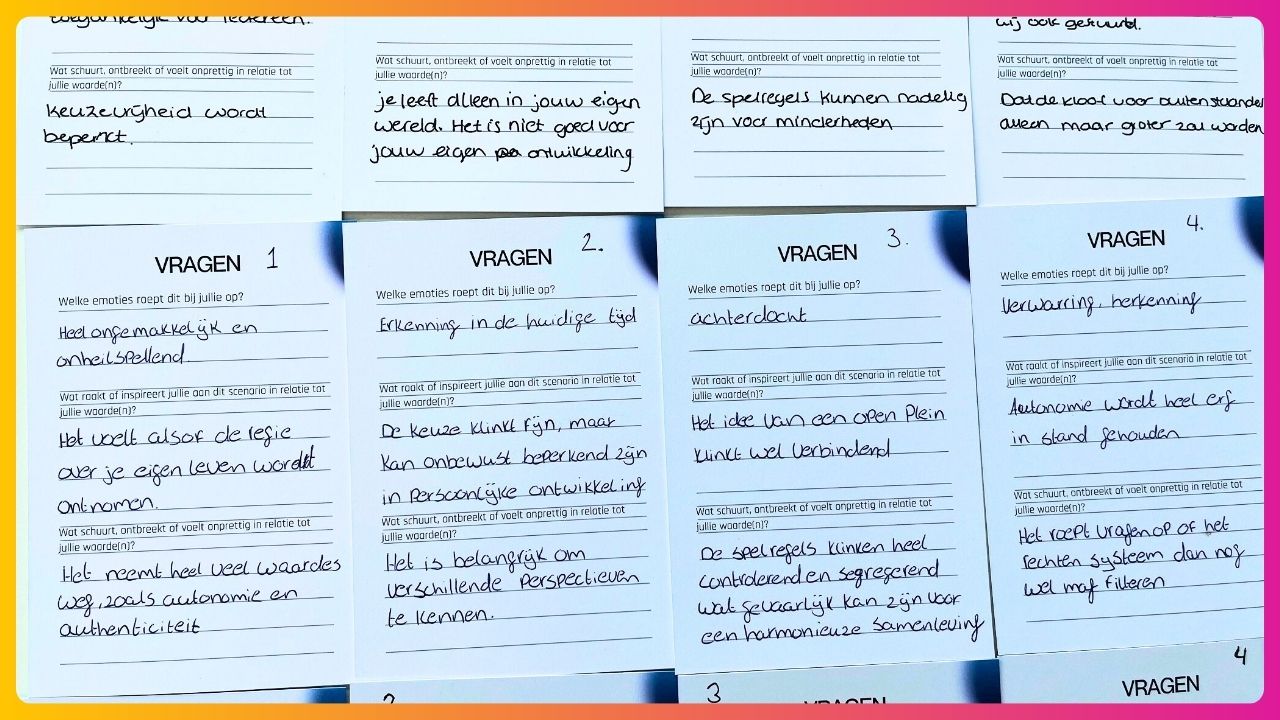 toegankelijk voor iedereen.
Wat schuurt, ontbreekt of voelt onprettig in relatie tot
jullie waarde(n)?
keuzevrijheid wordt
beperkt.
Wat schuurt, ontbreekt of voelt onprettig in relatie tot
jullie waarde(n)?
je leeft alleen in jouw eigen
wereld. Het is niet goed voor
jouw eigen ontwikkeling
Wat schuurt, ontbreekt of voelt onprettig in relatie tot
jullie waarde(n)?
De spelregels kunnen nadelig
zijn voor minderheden
wij ook gestuurd.
Wat schuurt, ontbreekt of voelt onprettig in relatie tot
jullie waarde(n)?
Dat de kloof voor
alleen maar groter zou worden
VRAGEN 1
Welke emoties roept dit bij jullie op?
Heel ongemakkelijk en
onheilspellend
Wat raakt of inspireert jullie aan dit scenario in relatie tot
jullie waarde(n)?
Het voelt alsof de regie
over je eigen leven wordt
ontnomen.
Wat schuurt, ontbreekt of voelt onprettig in relatie tot
jullie waarde(n)?
Het neemt heel veel waardes
weg, zoals autonomie en
authenticiteit
VRAGEN 2.
Welke emoties roept dit bij jullie op?
Erkenning in de huidige tijd
Wat raakt of inspireert jullie aan dit scenario in relatie tot
jullie waarde(n)?
De keuze klinkt fijn, maar
kan onbewust beperkend zijn
in persoonlijke ontwikkeling
Wat schuurt, ontbreekt of voelt onprettig in relatie tot
jullie waarde(n)?
Het is belangrijk om
verschillende perspectieven
te kennen.
VRAGEN 3.
Welke emoties roept dit bij jullie op?
achterdocht
Wat raakt of inspireert jullie aan dit scenario in relatie tot
jullie waarde(n)?
Het idee van een open plein
klinkt wel verbindend
Wat schuurt, ontbreekt of voelt onprettig in relatie tot
jullie waarde(n)?
De spelregels klinken heel
controlerend en segregerend
wat gevaarlijk kan zijn voor
een harmonieuze samenleving
VRAGEN 4.
Welke emoties roept dit bij jullie op?
Verwarring, herkenning
Wat raakt of inspireert jullie aan dit scenario in relatie tot
jullie waarde(n)?
Autonomie wordt heel erg
in stand gehouden
Wat schuurt, ontbreekt of voelt onprettig in relatie tot
jullie waarde(n)?
Het roept vragen op of het
rechten systeem dan nog
wel mag filteren
2
3
VRAGEN
4
VRAGEN